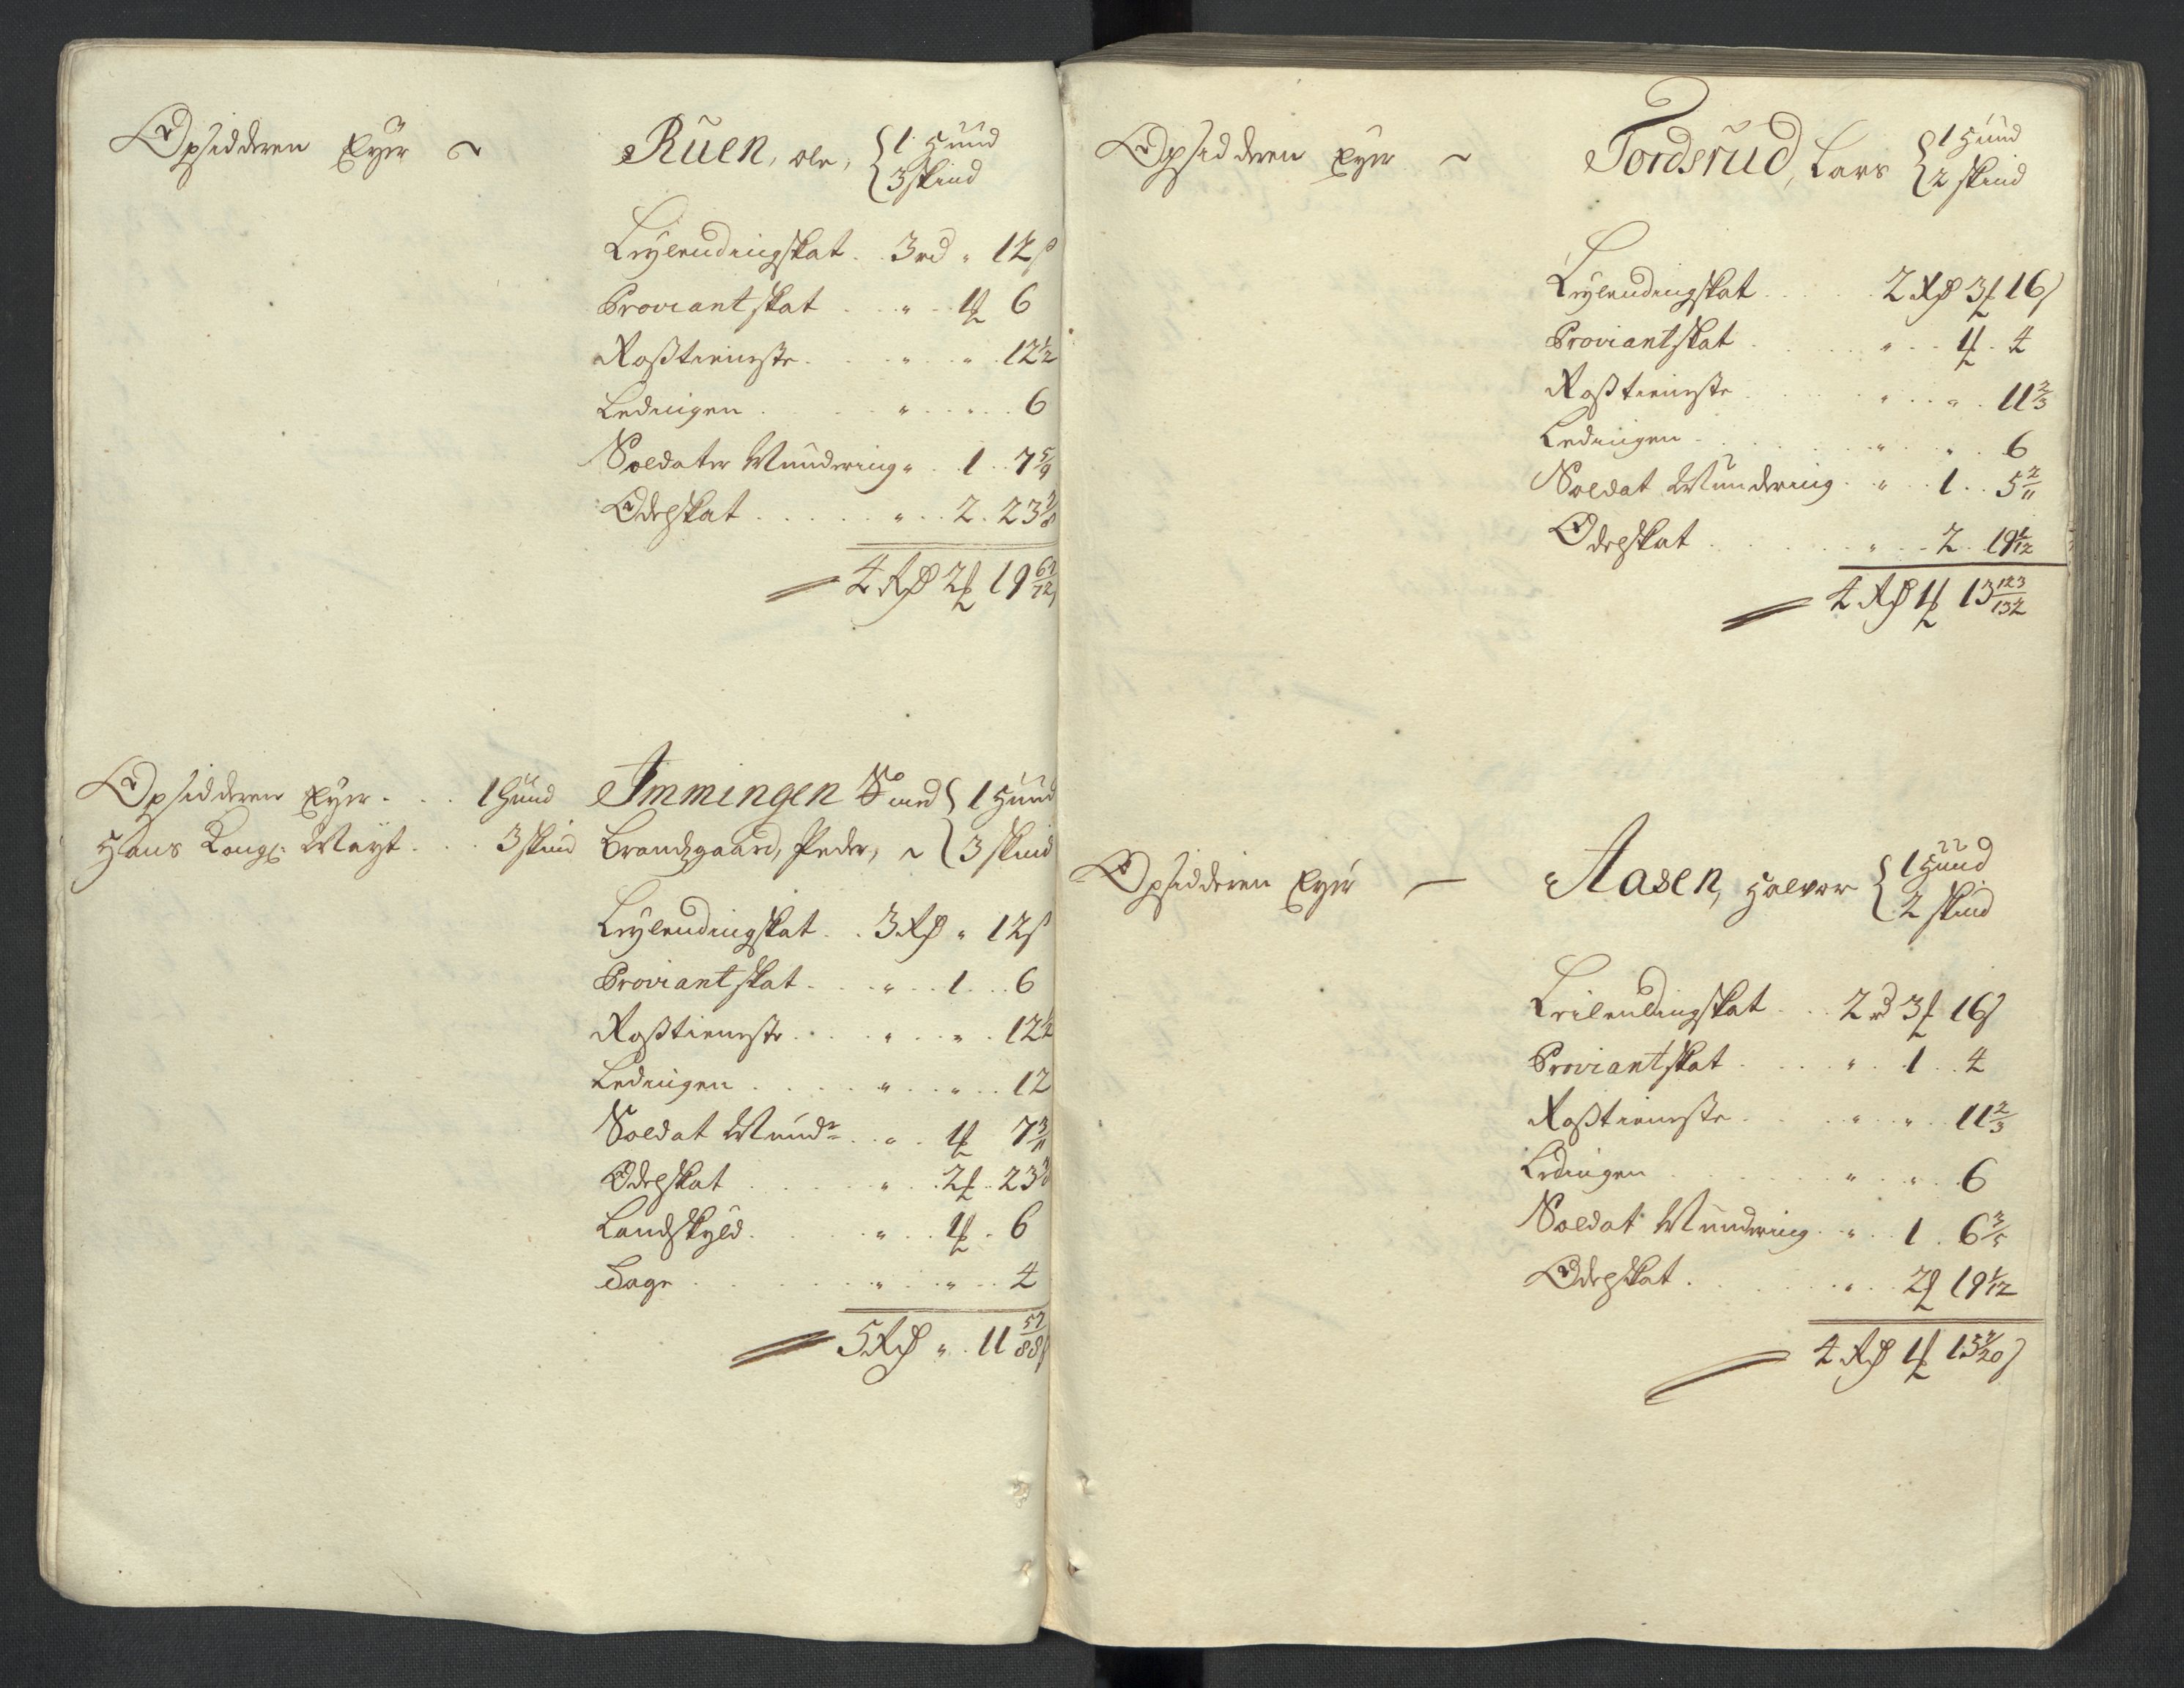 Opsidderen Eyer ~ Rüen, ole, { 1 Hüüd
3 skind
Leylendingskat . . 3 rd " 12 ß
Proviantskat . . . " . . 1 6
Rosstieneste . . . " . " . 12 1/2
Ledingen . . . " . . . . 6
Soldater Mundering " . . 1 . . 7 5/9
Odelskat . . . . . " . . 2 . 23 3/8
4 Rdr 2 19 67/72
Opsidderen Eyer . . . 1 Hüüd Immingen S med { 1 Hüüd
Hans Kongl: Mayt . . . 3 skind Brandsgaard, Peder, ~ { 3 skind
Leylendingskat . . 3 Rdr " 12 ß
Proviantskat . . . " . . 1 . . 6
Rosstieneste . . . . " . . " . 12 1/2
Ledingen . . . . " . . " . . 12
Soldat Mund: . . " . 1 7 3/11
Odelskat . . . . " . . 2 . . 23 3/8
Landskyld . . . . " . . 1 . 6
Sage . . . . . " . . " . . 4
5 Rdr " . 11 57/88 ß
Opsidderen Eyer ~ Tordsrüd, Lars { 1 Hüüd
2 skind
Leylendingskat . . . . . 2 Rdr 3 16 ß
Proviantskat . . . . . " . . 1 . 4
Rosstieneste . . . . . " . . " . 11 2/3
Ledingen . . . . . . " . . " . 6
Soldat Mundering . . " . . 1 . . 5 2/11
Odelskat . . . . . . " . . 2 . . 19 1/12
4 Rdr 1 13 123/132
Opsidderen Eyer — Aasen, Halvor { 1 Hüüd
2 skind
Leilendingskat . . . 2 rd 3 16 ß
Proviantskat . . . . " . . 1 . . 4
Rosstieneste . . . . " . . " . . 11 2/3
Ledingen . . . . . . " . . " . . 6
Soldat Mundering . . " . . 1 . 6 2/5
Odelskat . . . . . . " . . 2 19 1/12
4 Rdr 1 15 3/20 ß